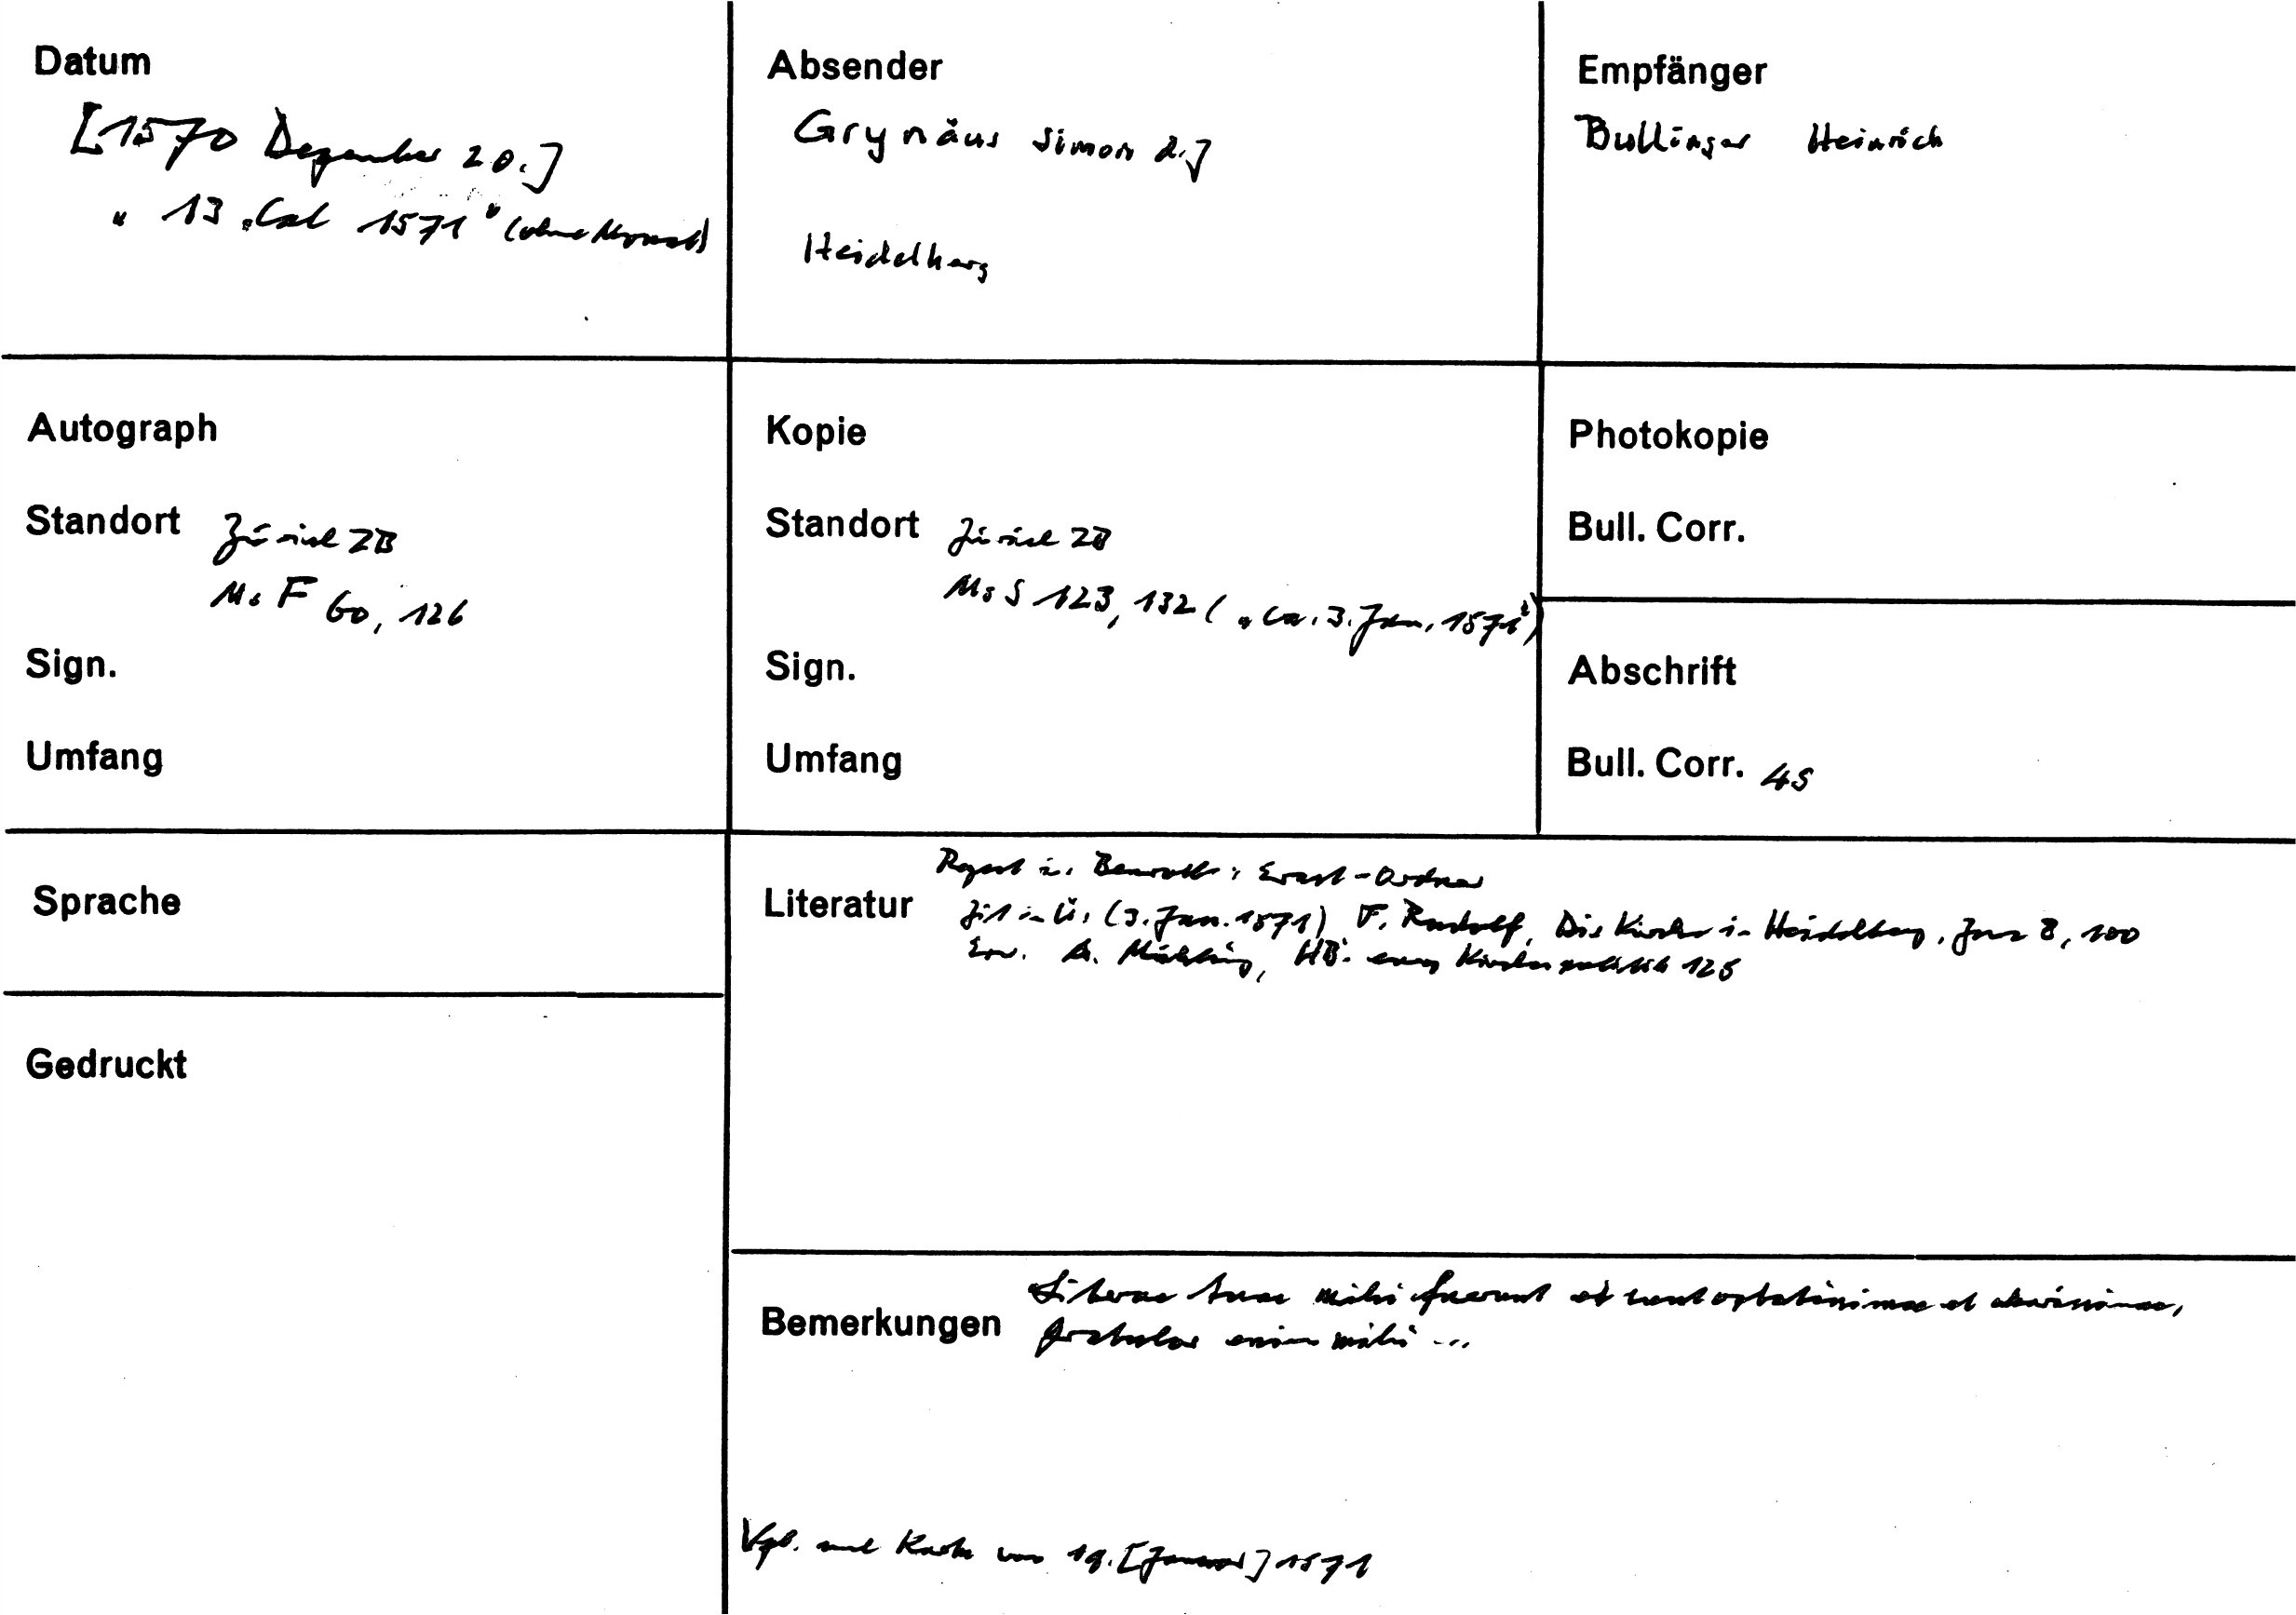 Datum
[1570 Dezember 20.]
" 13. Cal 1571" (ohne Monat)
Absender
Grynäus Simon d.J
Heidelberg
Empfänger
Bullinger Heinrich
Autograph
Standort Zürich ZB
Ms F 60, 126
Sign.
Umfang
Kopie
Standort Zürich ZB
Ms S 123, 132 ("ca. 3. Jan. 1571")
Sign.
Umfang
Photokopie
Bull. Corr.
Abschrift
Bull. Corr. 4S
Sprache
Gedruckt
Literatur
Regest in: Benrath: Erast-Ordner
Zit in Ü: (3. Jan. 1571) F. Rudolf, Die Kirche in Heidelberg, Zwa 8, 100
Erw. A. Mühling, HB: europ Kirchenpolitik 125
Bemerkungen
Literae tuae mihi fuerunt et sunt optatissimae et charissimae,
gratulor enim mihi ...
Vgl. auch Karte von 19. [Januar] 1571